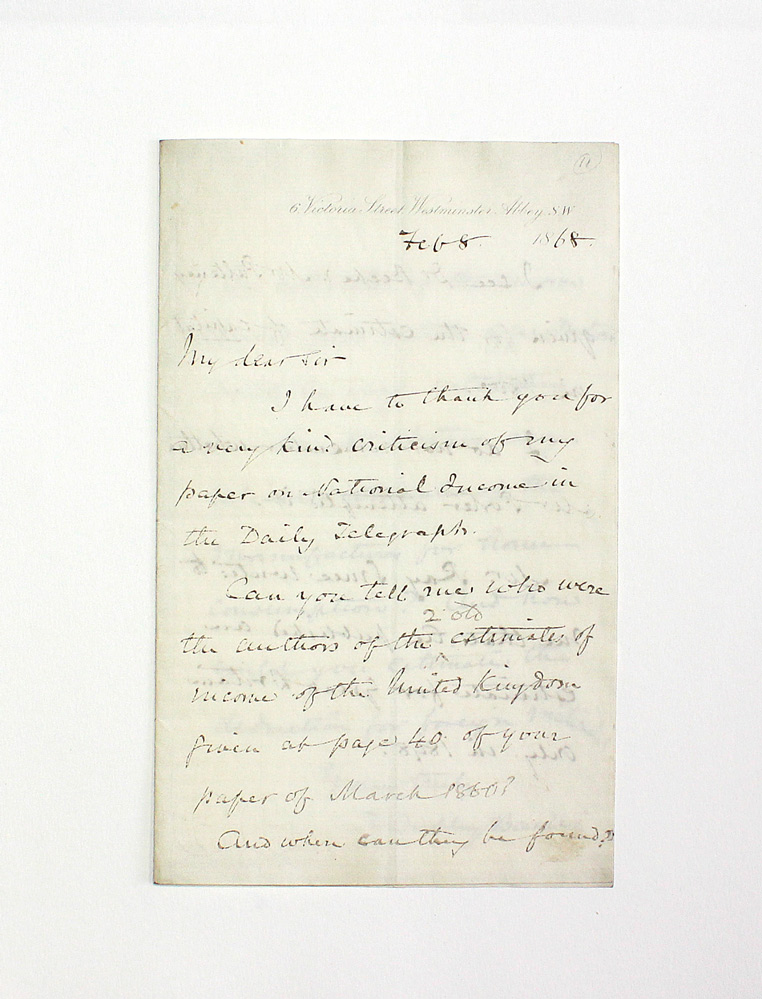 11
6 Victoria Street Westminster Abbey, S.W.
Feb 8. 1868.
My dear Sir
I have to thank you for
a very kind criticism of my
paper on National Income in
the Daily Telegraph.
Can you tell me who were
2 old
the authors of the estimates of
income of the United Kingdom
given at page 40 of your
paper of March 1860?
And where can they be found?